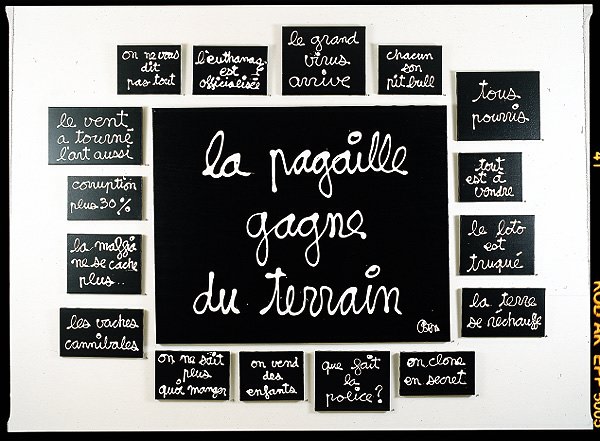 on ne vous
dit
pas tout
l'euthanasie
est
officialisée
le grand
virus
arrive
chacun
son
pit bull
tous
pourris
le vent
a tourné
l'art aussi
la pagaille
gagne
du terrain
Ben
tout
est à
vendre
corruption
plus 30%
le loto
est
truqué
la mafia
ne se cache
plus..
la terre
se réchauffe
les vaches
cannibales
on ne sait
plus
quoi manger
on vend
des
enfants
que fait
la
police?
on clone
en secret
41
KODAK EPP 5005